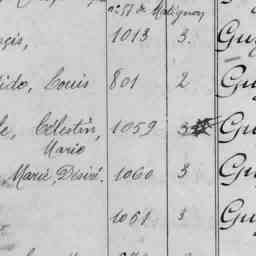 n° 57 de Matignon
çis, 1013 3. Gu
ido, Louis 801 2 Gu
le, Célestin, 1059 3 Gu
Marie
Marie, Désiré. 1060 3 Gu
1061 3 Gu